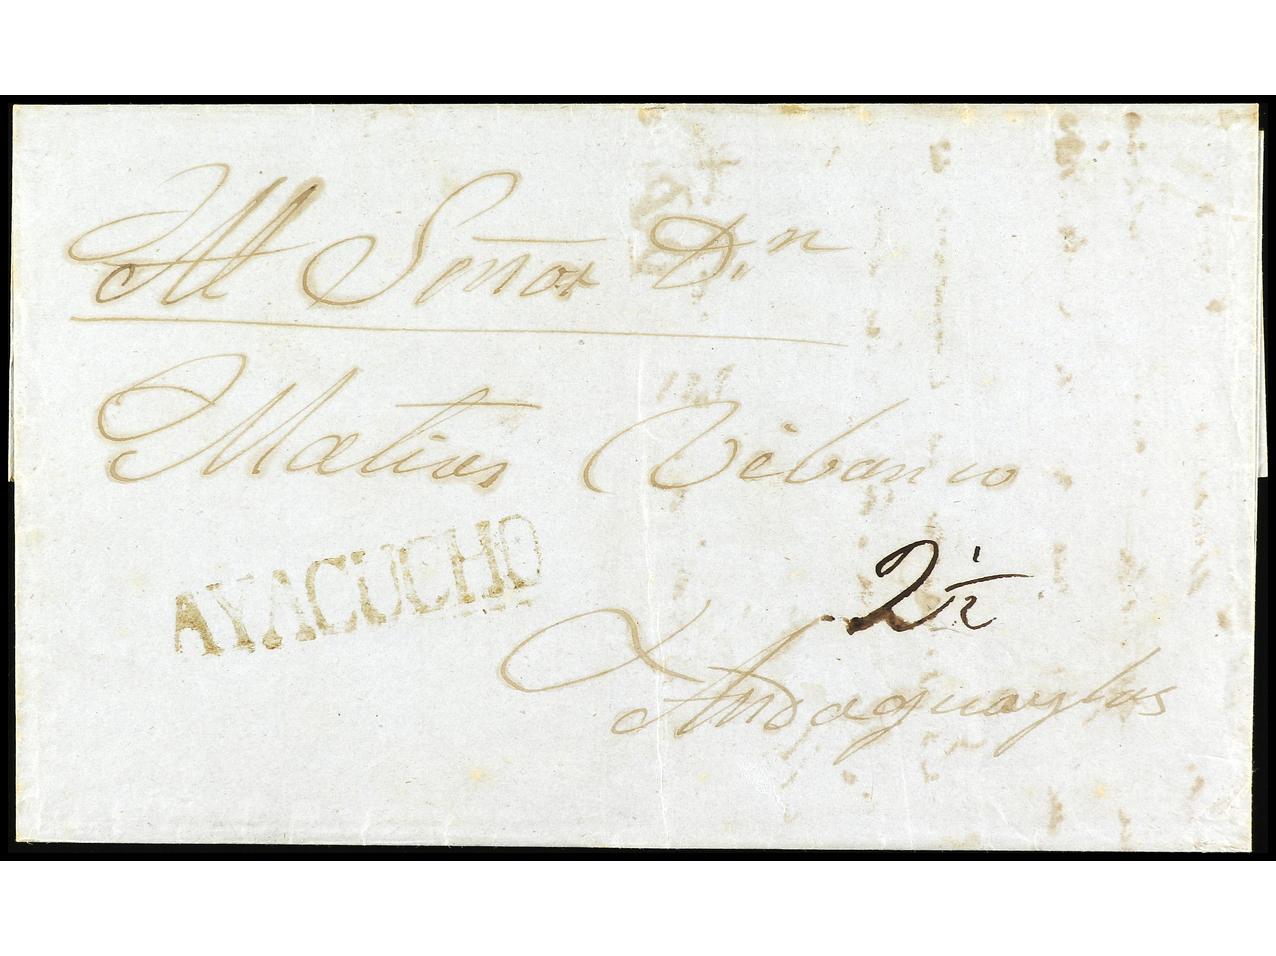 Al Señor D.n
Matias Vibanco
AYACUCHO
2 1/2
Andaguaylas